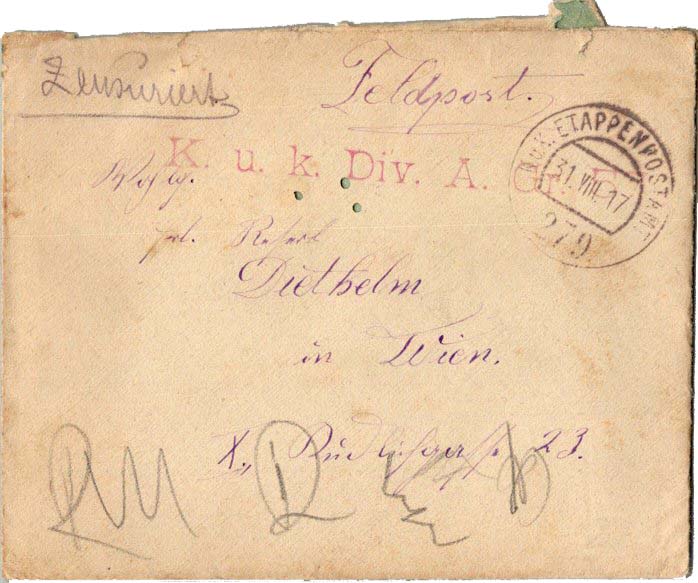 Zensuriert
Feldpost.
K. u. k. Div. A. Gr. F
K.u.K. ETAPPENPOSTAMT
31 VIII. 17
279
Wohlg.
Diethelm
in Wien.
X., 23.